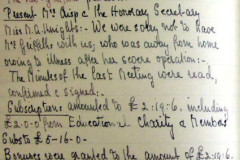 Present Mrs Crisp & The Honorary Secretary
Miss D.A. Knights:- We were sorry not to have
Mrs Griffiths with us, who was away from home
owing to illness after her severe operation:-
The Minutes of the last Meeting were read,
confirmed & signed:-
Subscriptions amounted to £2:19:6. including
£2-0-0 from Educational Charity & Members
Substs 5-16-0-
Bonuses were granted to the amount of £2:19:6.